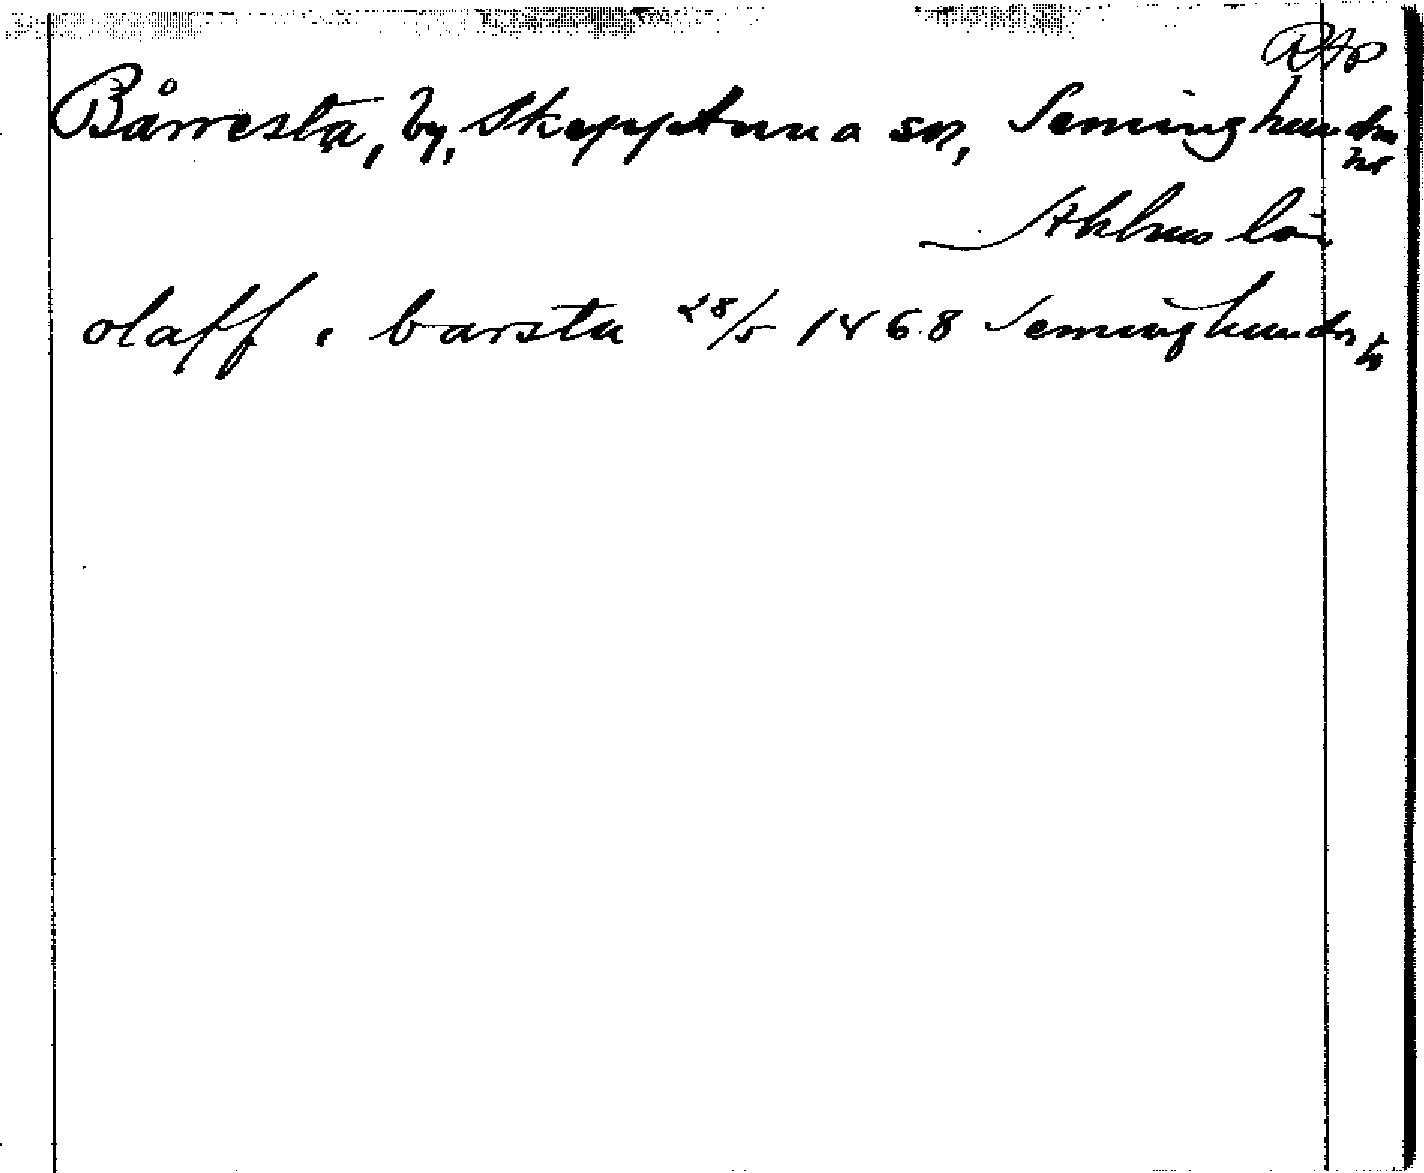 RAp
Bårresta, by, Skepptuna sn, Seminghundra
hd
Sthlms län
olaff i barsta 28/5 1468 Seminghundr